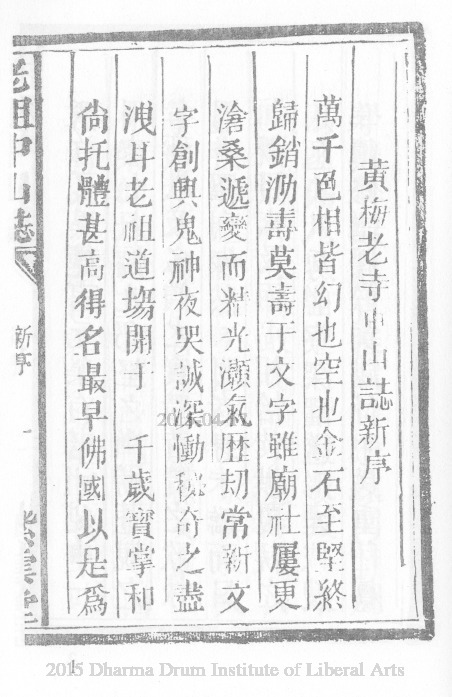 黃梅老寺中山誌新序
萬千色相皆幻也空也金石至堅終
歸銷泐壽莫壽于文字雖廟社屢更
滄桑遞變而精光灝氣歷刧常新文
字創興鬼神夜哭誠深慟秘奇之盡
洩耳老祖道塲開于 千歲寶掌和
尙托體甚高得名最早佛國以是爲
老祖中山誌
新序
一
1
2015 Dharma Drum Institute of Liberal Arts